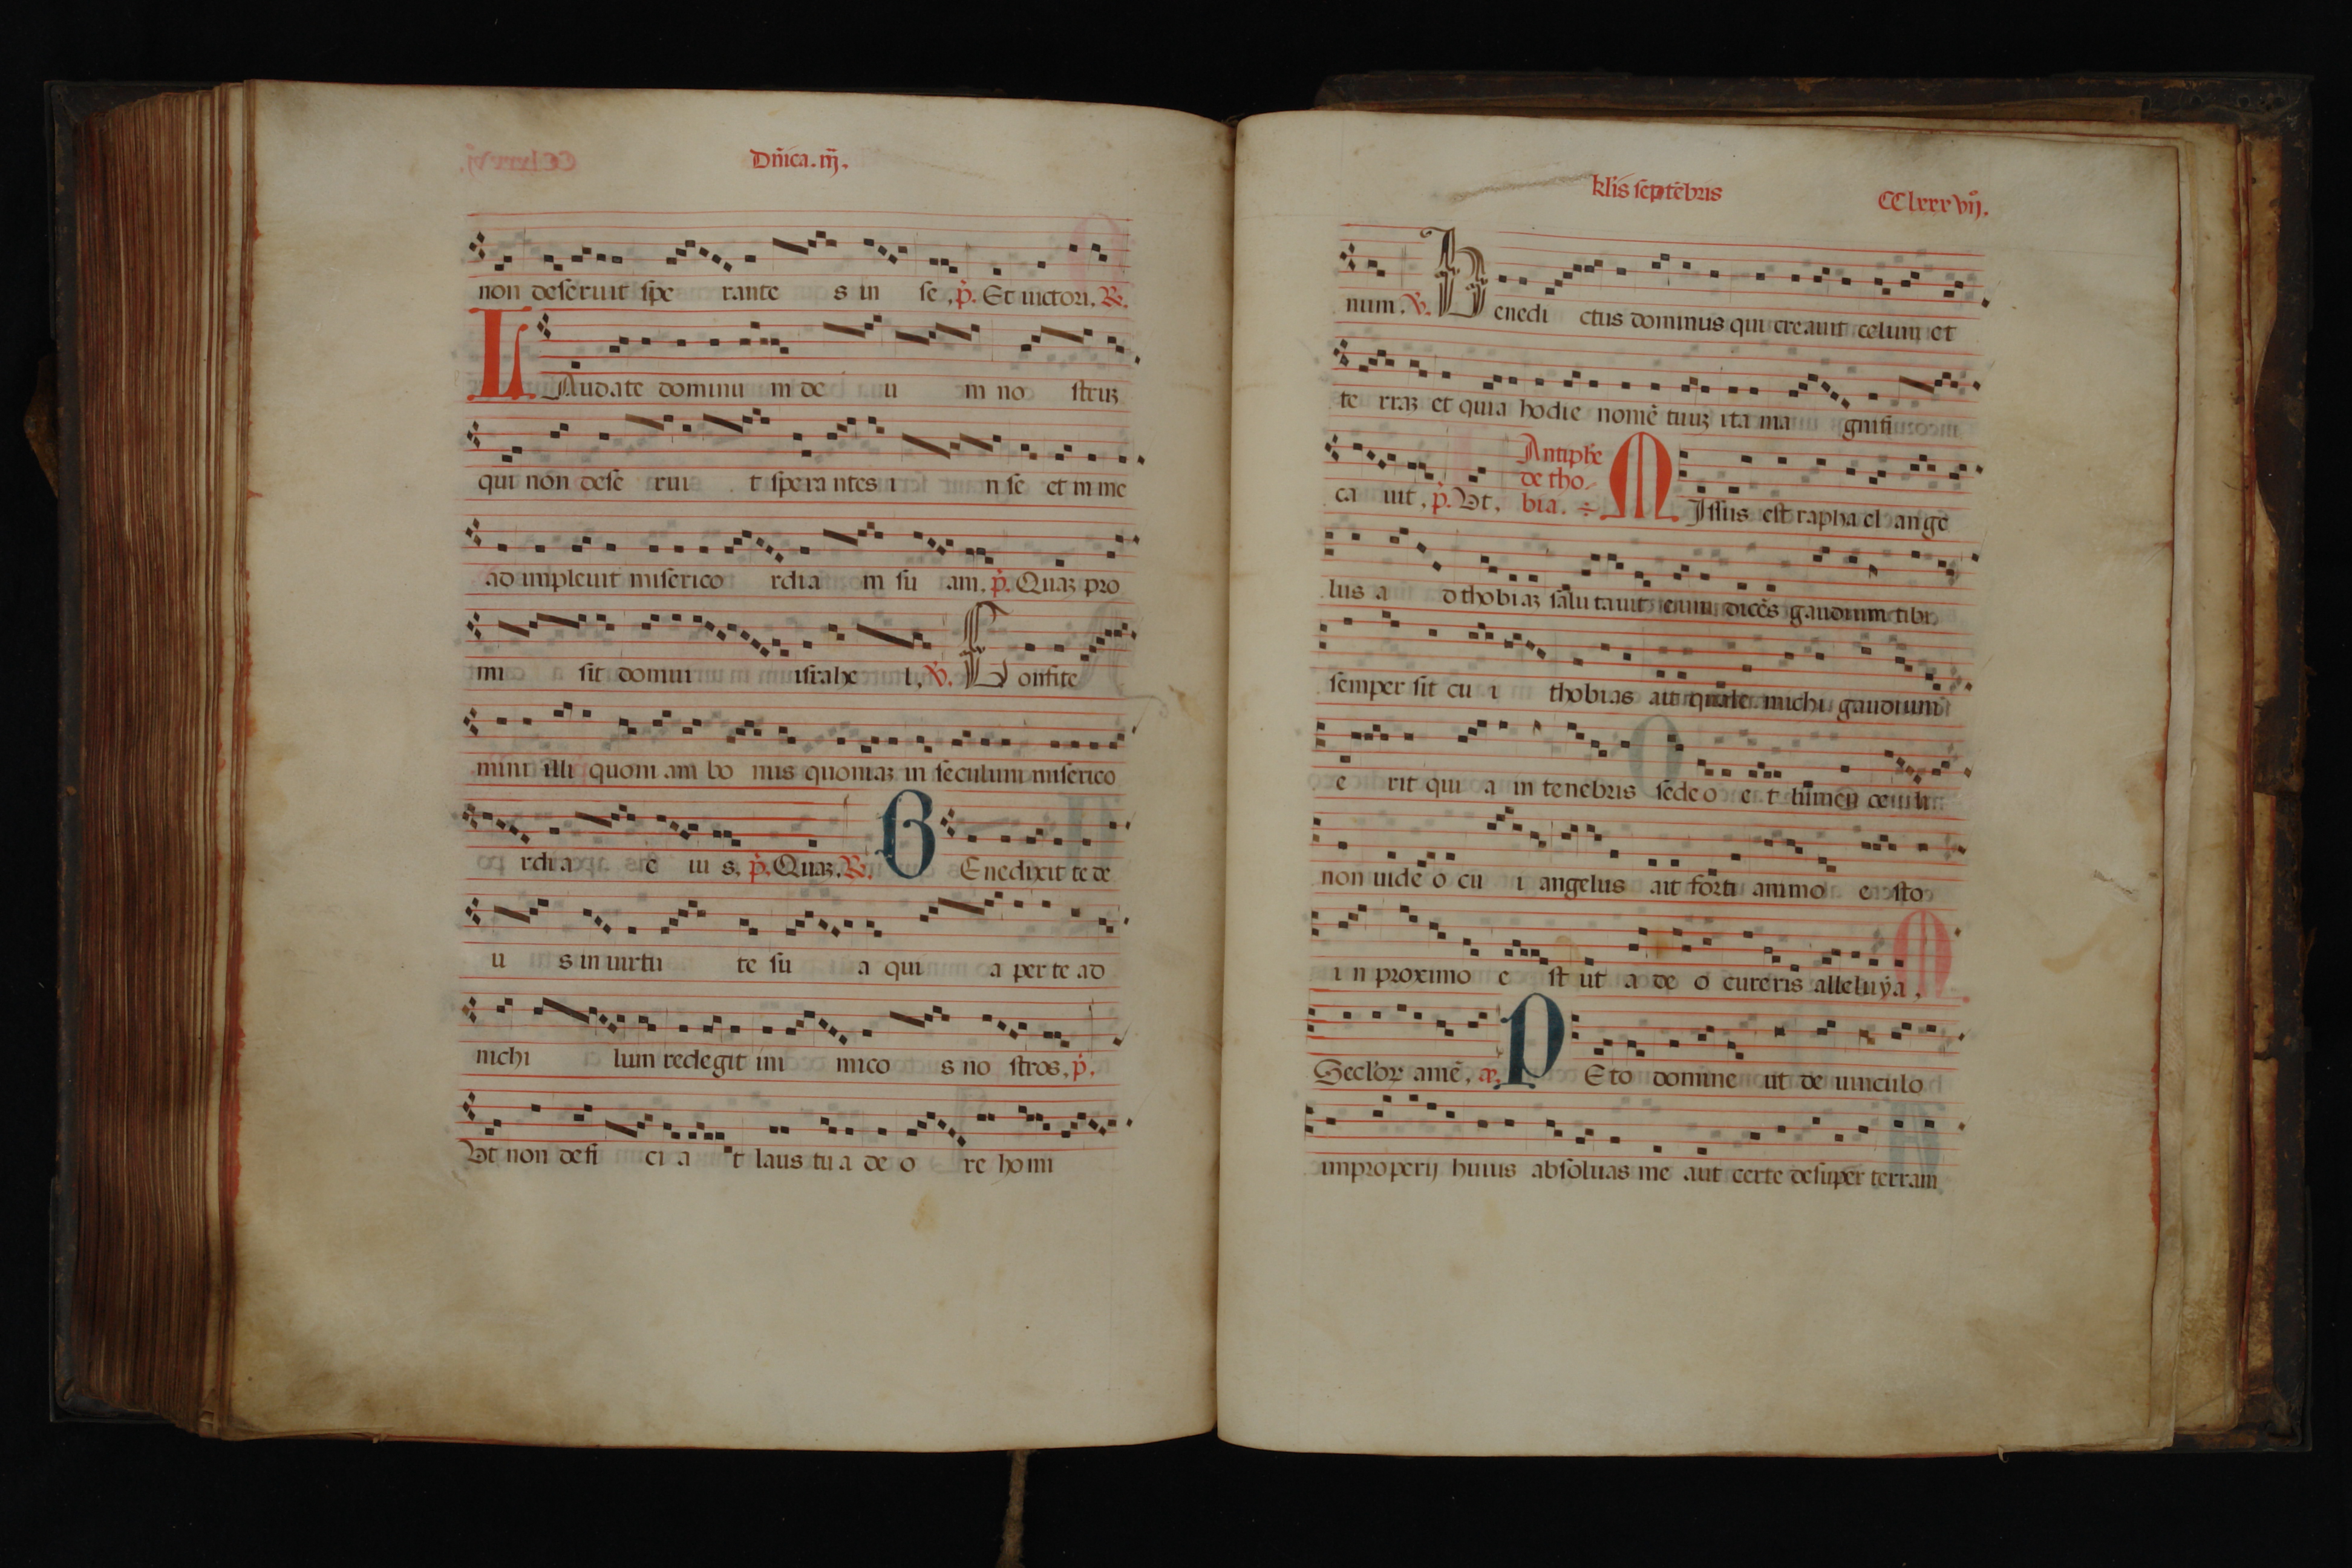 Dñica. iij.
non deseruit spe rante s in se, p̃. Et uictori. ℟.
LAudate dominu m de u m no struʒ
qui non dese rui t spera ntes i n se et in me
ad impleuit miserico rdia m su am, p̃. Quaʒ pro
mi sit domui israhe l, ℣. Confite
mini illi quoni am bo nus quoniaʒ in seculum miserico
rdi a e iu s, p̃. Quaʒ. ℟. BEnedixit te de
u s in uirtu te su a qui a per te ad
nichi lum redegit ini mico s no stros, p̃.
Vt non defi ci a t laus tu a de o re homi
klis septẽbris CClxxxvijº.
num. ℣. Benedi ctus dominus qui creauit celum et
te rraʒ et quia hodie nomẽ tuuʒ ita ma gnifi
ca uit, p̃. Vt, Antiphe de tho bia. MIssus est rapha el ange
lus a d thobiaʒ salutauit eum dicẽs gaudium tibi
semper sit cu i thobias ait quale michi gaudium
e rit qui a in tenebris sedeo e t lumen celi
non uide o cu i angelus ait forti animo e sto
i n proximo e st ut a de o cureris alleluỹa,
Secl'oꝝ amẽ, PEto domine ut de uinculo
improperij huius absoluas me aut certe desuper terram